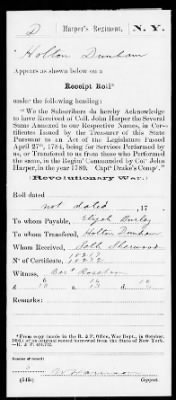 D Harper's Regiment, N. Y.
Holton Dunham
Appears as shown below on a
Receipt Roll*
under the following heading:
"We the Subscribers do hereby Acknowledge
to have Received of Coll. John Harper the Several
Sums Annexed to our Respective Names, in Cer-
tificates Issued by the Treasurer of this State
Pursuant to an Act of the Legislature Passed
April 27th, 1784, being for Services Performed by
us, or Transferred to us from those who Performed
the same, in the Regim't Commanded by Col' John
Harper, in the year 1780. Capt" Drake's Comp'."
(Revolutionary War.)
Roll dated
not dated, 17
To whom Payable, Elijah
To whom Transferred, Holton Dunham
Whom Received, Noth Sherwood
No of Certificate,
Witness,
Remarks:
*From copy made in the R. & P. Office, War Dept., in October,
of an original record borrowed from the State of New York.
—R. & P.
Copyist.